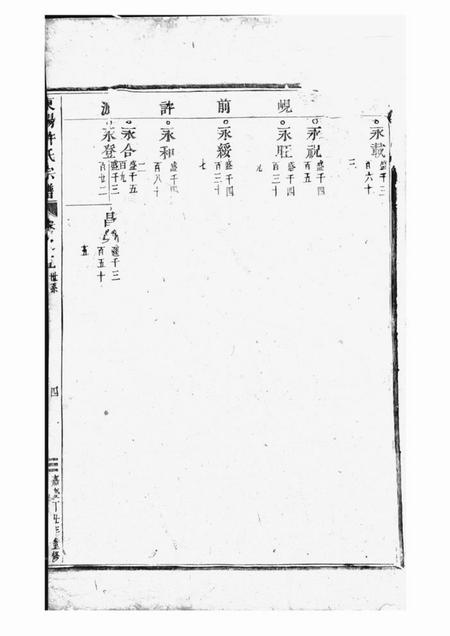 峴
前
許
永載
盛千三
百六十
三
永祝
盛千四
百五
永旺
盛千四
百三十
九
永緩
盛千四
百三十
七
永和
盛千四
百八十
二
永合
盛千五
百九
永登
盛千三
百廿二
昌
盛千三
百五十
五
東陽許氏宗譜
卷
世系
四
嘉慶丁丑年重修